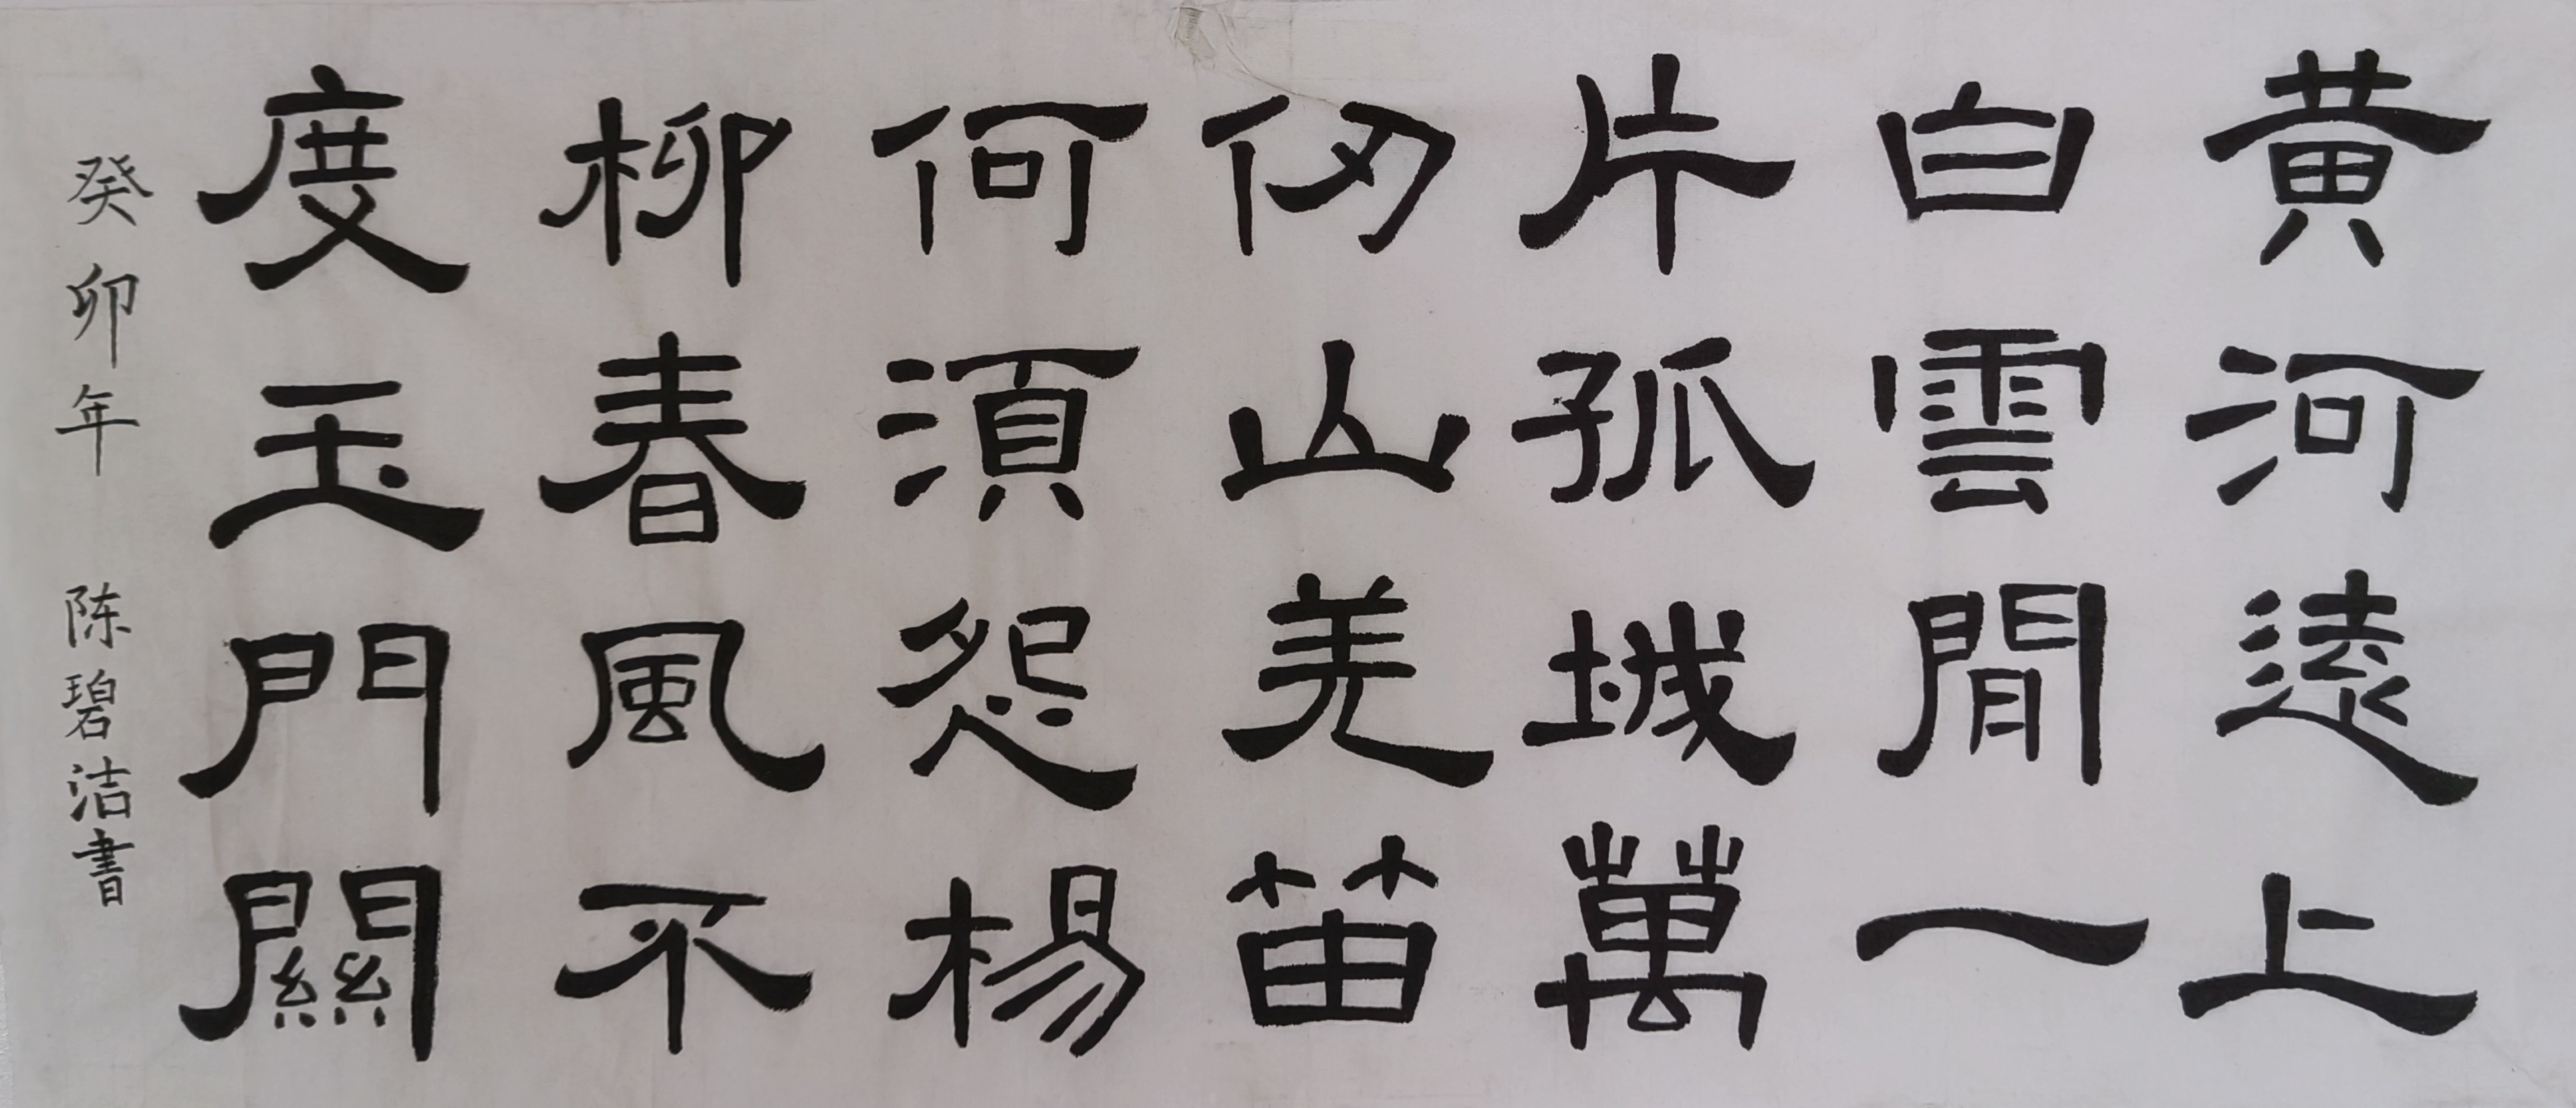 黄河遠上
白雲間一
片孤城萬
仞山羌笛
何須怨楊
柳春風不
度玉門關
癸卯年 陈碧洁書